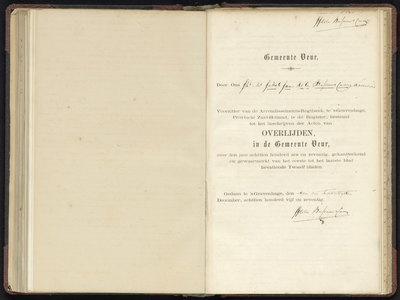 Gemeente Veur.
Door Ons
Voorzitter van de Arrondissements-Regtbank, te 'sGravenhage,
Provincie Zuid-Holland, is dit Register, bestemd
tot het inschrijven der Acten van
OVERLIJDEN,
in de Gemeente Veur,
over den jare achttien honderd zes en zeventig, gekwoteerd
en gewaarmerkt van het eerste tot het laatste blad
bevattende Twaalf bladen
Gedaan te 'sGravenhage, den
December, achttien honderd vijf en zeventig